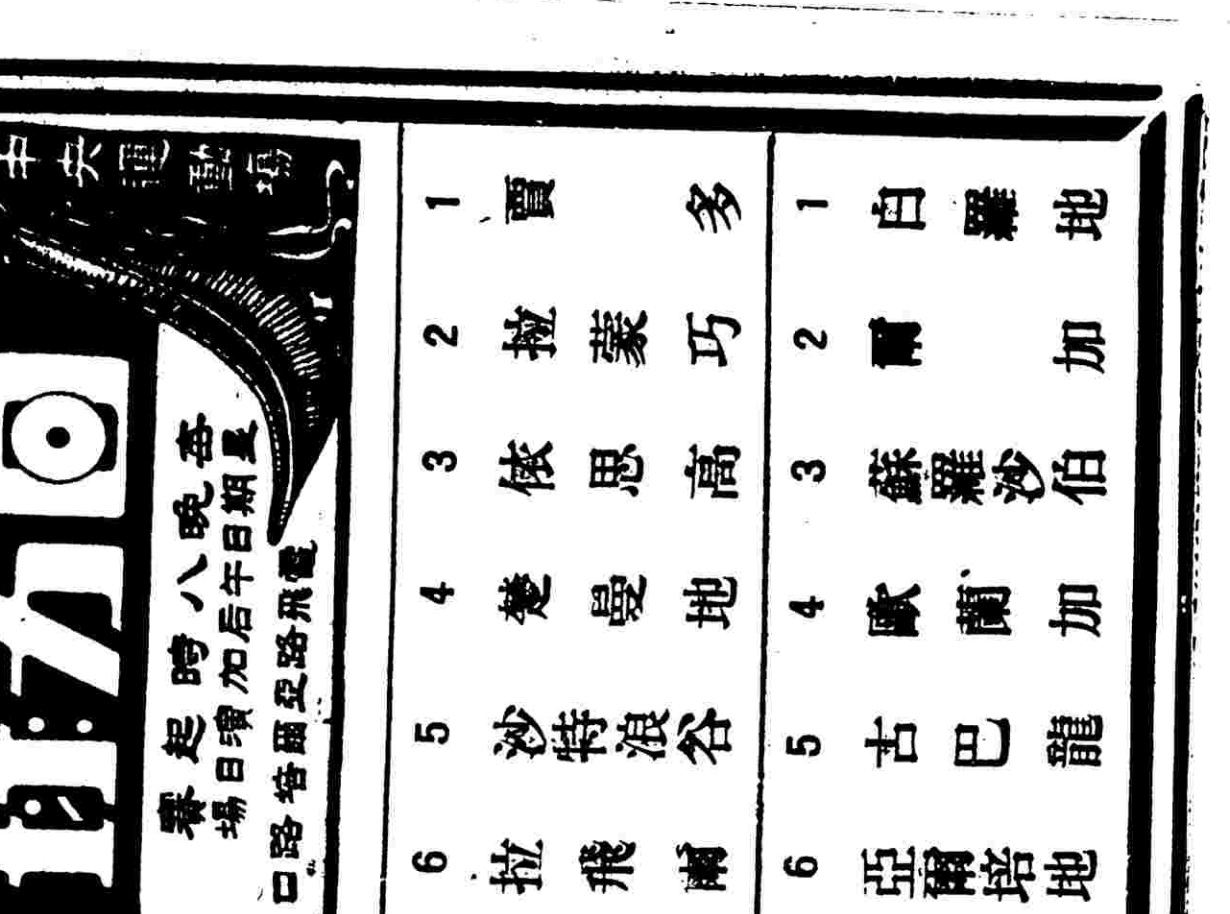 中央運動場
每晚八時起賽
星期日午后加演日場
霞飛路亞爾培路口
1 賈多
2 拉蒙巧
3 依思高
4 楚曼地
5 沙特浪谷
6 拉飛爾
1 白羅地
2 爾加
3 蘇羅沙伯
4 歐蘭加
5 古巴龍
6 亞爾培地